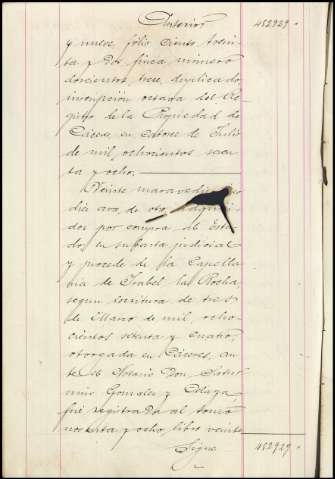 Anterior 452929.
y nueve, folio ciento, trein-
ta y dos, finca número
doscientos trece, duplicado,
inscripción octava del Re-
gistro de la Propiedad de
Cáceres, en catorce de Julio
de mil, ochocientos, seten-
ta y ocho.
Veinte maravedi
diez avo, de otro, adquiri-
dos por compra al Esta-
do, en subasta judicial
y procede de la Capella-
nia de Isabel la Rocha,
segun escritura de tres
de Marzo de mil, ocho-
cientos setenta y cuatro,
otorgada en Cáceres, an-
te el Notario Don
Gonzalez y
fué registrada al tomo
noventa y ocho, libro veinte
Sigue 452929.